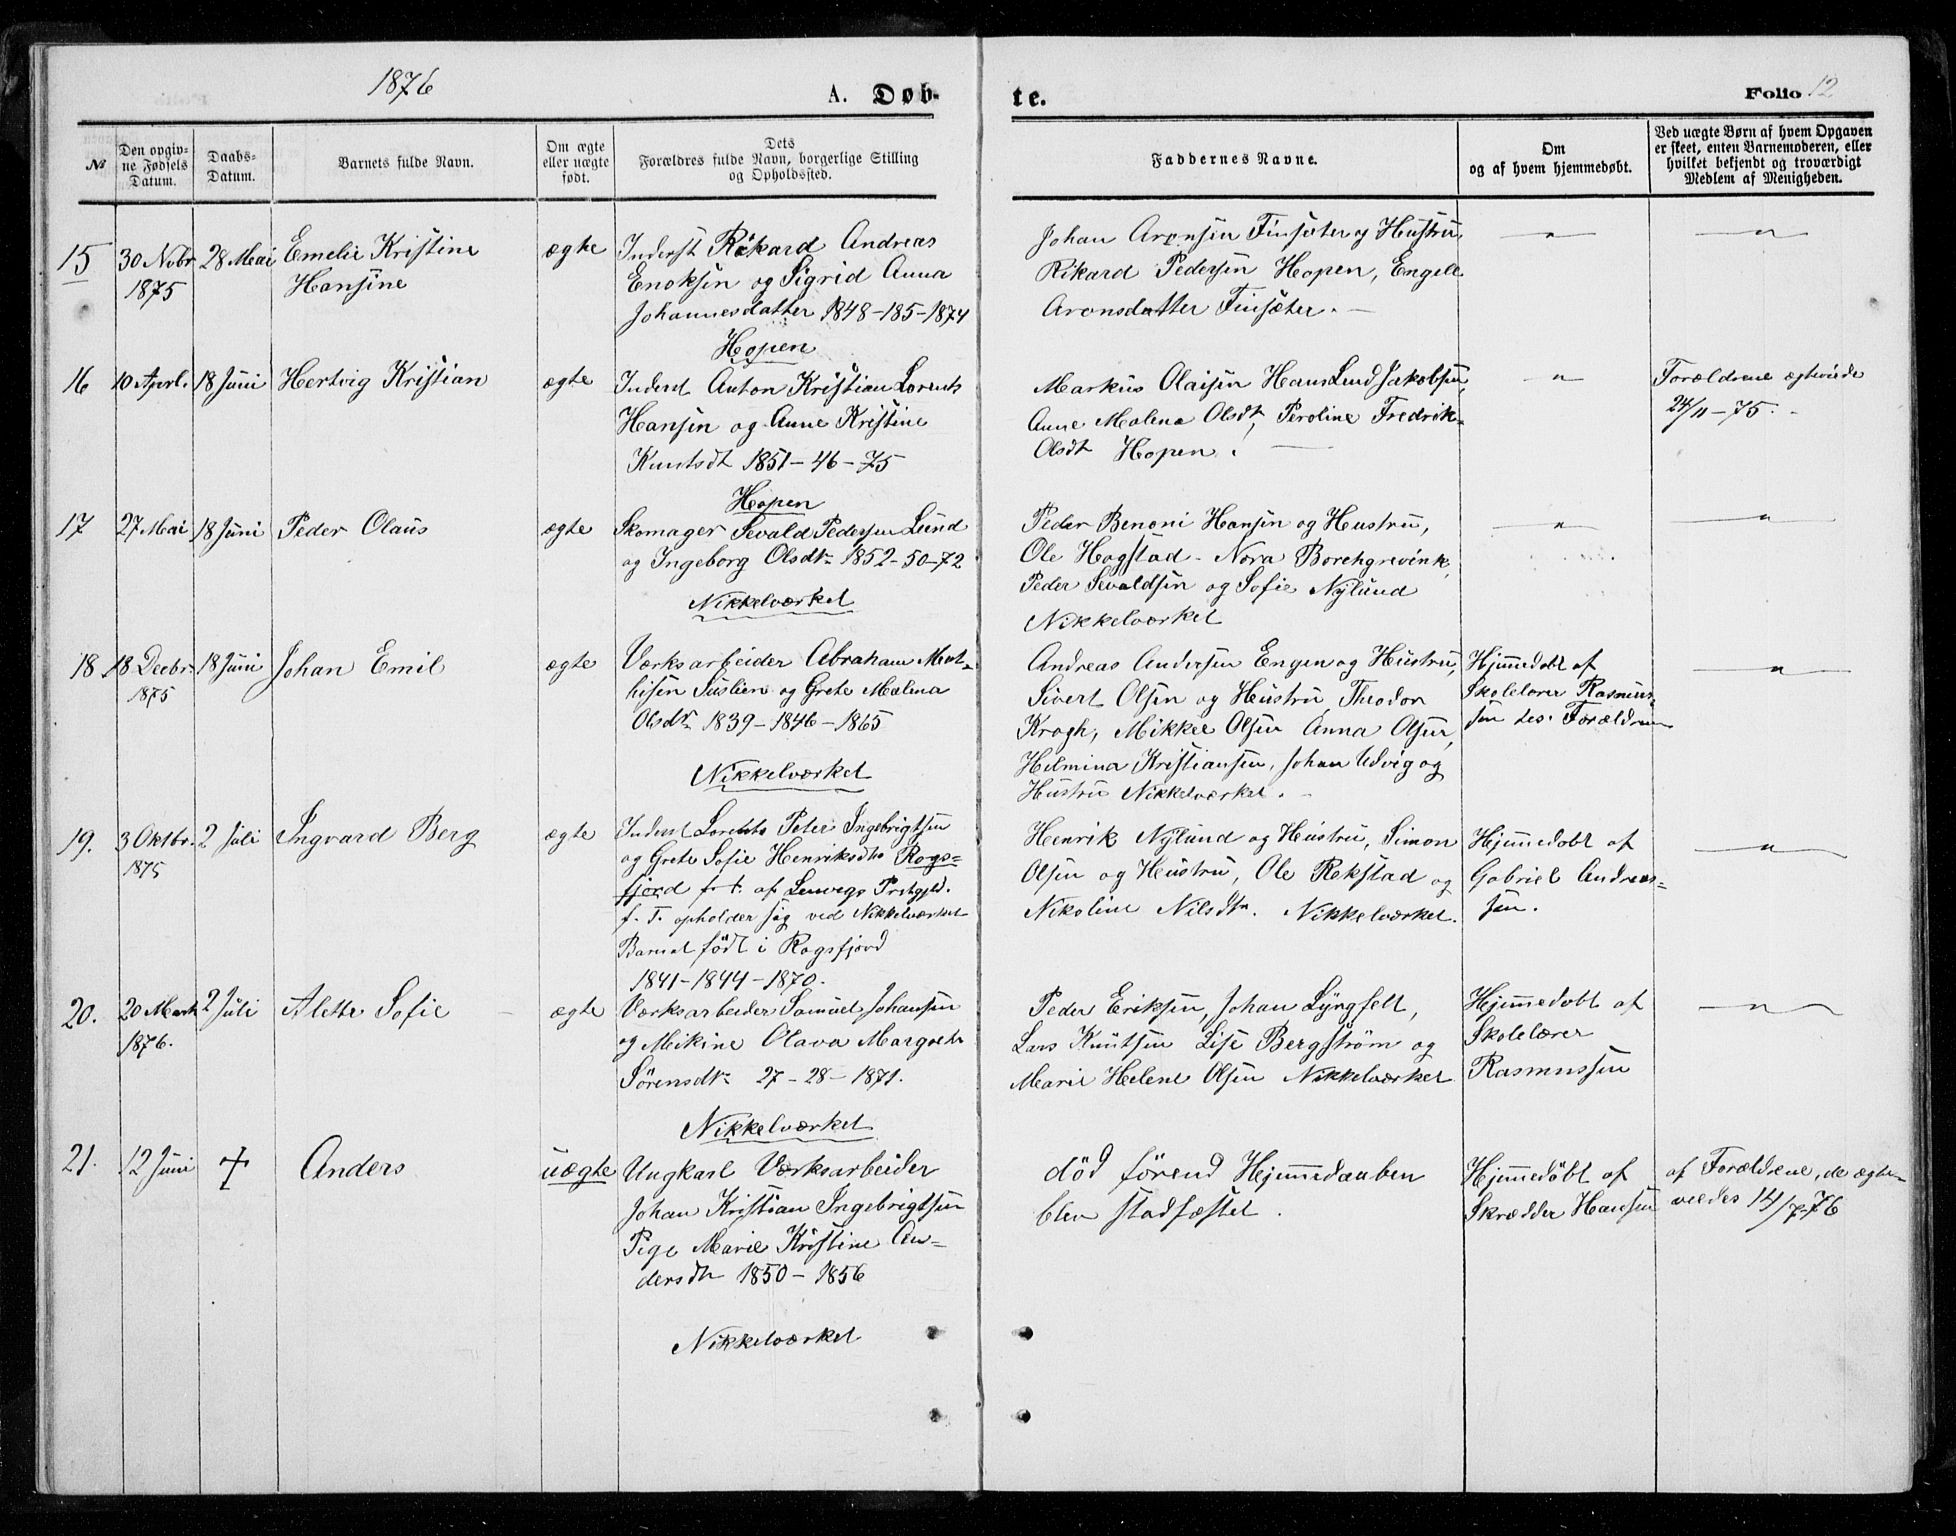 1876
A. Døb-
te.
Folio 12
№
Den opgiv-
ne Fødsels
Datum.
Daabs-
Datum.
Barnets fulde Navn.
Om ægte
eller uægte
født.
Dets
Forældres fulde Navn, borgerlige Stilling
og Opholdssted.
Faddernes Navne.
Om
og af hvem hjemmedøbt.
Ved uægte Børn af hvem Opgaven
er skeet, enten Barnemoderen, eller
hvilket bekjendt og troværdigt
Medlem af Menigheden.
15
30 Nobr
1875
28 Mai
Emelie Kristine
Hansine
ægte
Inderst Rikard Andreas
Enoksen og Sigrid Anna
Johannesdatter 1848-185-1874
Hopen
Johan Aronsen Finsæter og Hustru,
Rikard Pedersen Hopen, Engel
Aronsdatter Finsæter. —
— " —
— " —
16
10 April.
18 Juni
Hertvig Kristian
ægte
Inderst Anton Kristian Lorents
Hansen og Anne Kristine
Knutsdt 1851-46-75
Hopen
Markus Olaisen Hans Lind Jakobsen,
Anne Malena Olsdt, Peroline Fredrik-
Olsdt Hopen. —
— " —
Forældrene ægteviede
24/11-75. -
17
27 Mai
18 Juni
Peder Olaus
ægte
Skomager Sevald Pedersen Lund
og Ingeborg Olsdtr 1852-50-72
Nikkelværket
Peder Benoni Hansen og Hustru,
Ole Hogstad - Nora Borchgrevink,
Peder Sevaldsen og Sofie Nylund
Nikkelværket
— " —
— " —
18
18 Decbr.
1875
18 Juni
Johan Emil
ægte
Værksarbeider Abraham Mat-
hisen Suslien og Grete Malena
Olsdtr 1839-1846-1865
Nikkelværket
Andreas Andersen Engen og Hustru,
Sivert Olsen og Hustru, Theodor
Krogh, Mikkel Olsen Anna Olsen,
Helmina Kristiansen, Johan Udvig og
Hustru Nikkelværket. -
Hjemmedøbt af
Skolelærer Rasmus-
sen hos Forældrene
— " —
19.
3 Oktbr.
1875
2 Juli
Ingvard Berg
ægte
Inderst Lorents Peter Ingebrigtsen
og Grete Sofie Henriksdtr Rogs-
fjord f. t. af Lenvegs Prstgjld.
f. T. opholder sig ved Nikkelværket
Barnet født i Rogsfjord
1841-1844-1870.
Henrik Nylund og Hustru, Simon
Olsen og Hustru, Ole Rekstad og
Nikoline Nilsdtr. Nikkelværket.
Hjemmedøbt af
Gabriel Andreas-
sen.
— " —
20.
20 Marts
1876.
2 Juli
Alette Sofie
ægte
Værksarbeider Samuel Johansen
og Mikine Olava Margrete
Sørensdtr 27-28-1871.
Nikkelværket
Peder Eriksen, Johan Lyngfelt,
Lars Knutsen Lise Bergstrøm og
Marie Helene Olsen Nikkelværket
Hjemmedøbt af
Skolelærer
Rasmussen
— " —
21.
12 Juni
+
Anders
uægte
Ungkarl Værksarbeider
Johan Kristian Ingebrigtsen
Pige Marie Kristine An-
dersdtr 1850-1856
Nikkelværket
død førend Hjemmedaaben
blev stadfæstet.
Hjemmedøbt af
Skrædder Hansen
af Forældrene, de ægte-
viedes 14/7-76